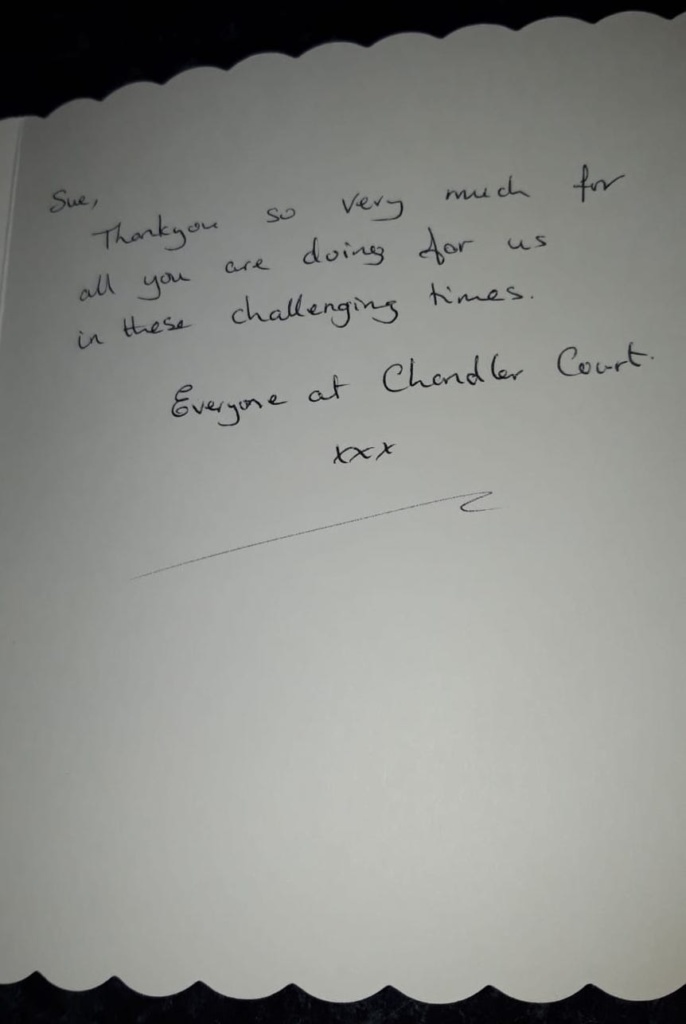 Sue,
Thankyou so very much for
all you are doing for us
in these challenging times.
Everyone at Chandler Court.
xxx